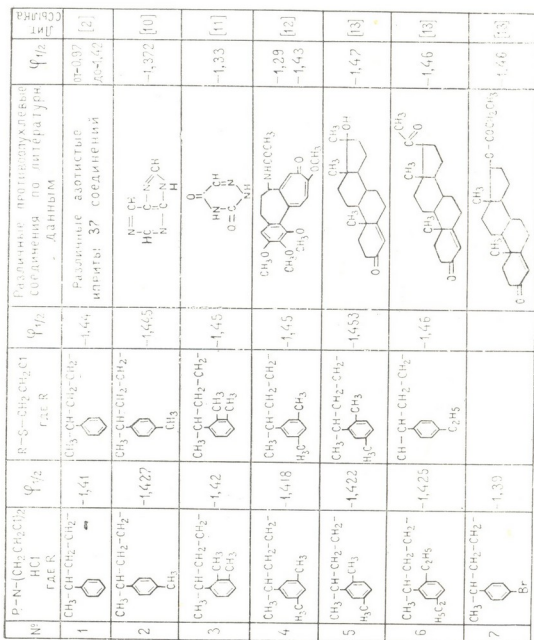 Nº
R-N-(CH₂CH₂Cl)₂
HCl
ГДЕ R
φ1/2
R-S-CH₂CH₂Cl
ГДЕ R
φ1/2
Различные противоопухлевые
соединения по литературн
. Данным
φ1/2
Лит
ссылка
1
CH₃-CH-CH₂-CH₂-
-1,41
CH₃-CH-CH₂-CH₂-
-1,44
Различные азотистые
иприты: 37 соединений
от-0,97
до-1,42
[2]
2
CH₃-CH-CH₂-CH₂-
CH₃
-1,427
CH₃-CH-CH₂-CH₂-
CH₃
-1,445
N
CH
HC
N
N
CH
N
H
-1,372
[10]
3
CH₃-CH-CH₂-CH₂-
CH₃
CH₃
-1,42
CH₃-CH-CH₂-CH₂-
CH₃
CH₃
-1,45
O
HN
CH
N
O=C
NH
-1,33
[11]
4
CH₃-CH-CH₂-CH₂-
H₃C
CH₃
-1,418
CH₃-CH-CH₂-CH₂-
H₃C
CH₃
-1,45
NHCOCH₃
CH₃O
CH₃O
OCH₃
O
OCH₃
-1,29
-1,43
[12]
5
CH₃-CH-CH₂-CH₂-
H₃C
CH₃
-1,422
CH₃-CH-CH₂-CH₂-
H₃C
CH₃
-1,453
CH₃
OH
CH₃
CH₃
O
-1,47
[13]
6
CH₃-CH-CH₂-CH₂-
C₂H₅
H₅C₂
-1,425
CH-CH-CH₂-CH₂-
C₂H₅
-1,46
CH₃
O
CH₃
CH₃
O
-1,46
[13]
7
CH₃-CH-CH₂-CH₂-
Br
-1,39
CH₃
CH₃
O
-1,46
[13]